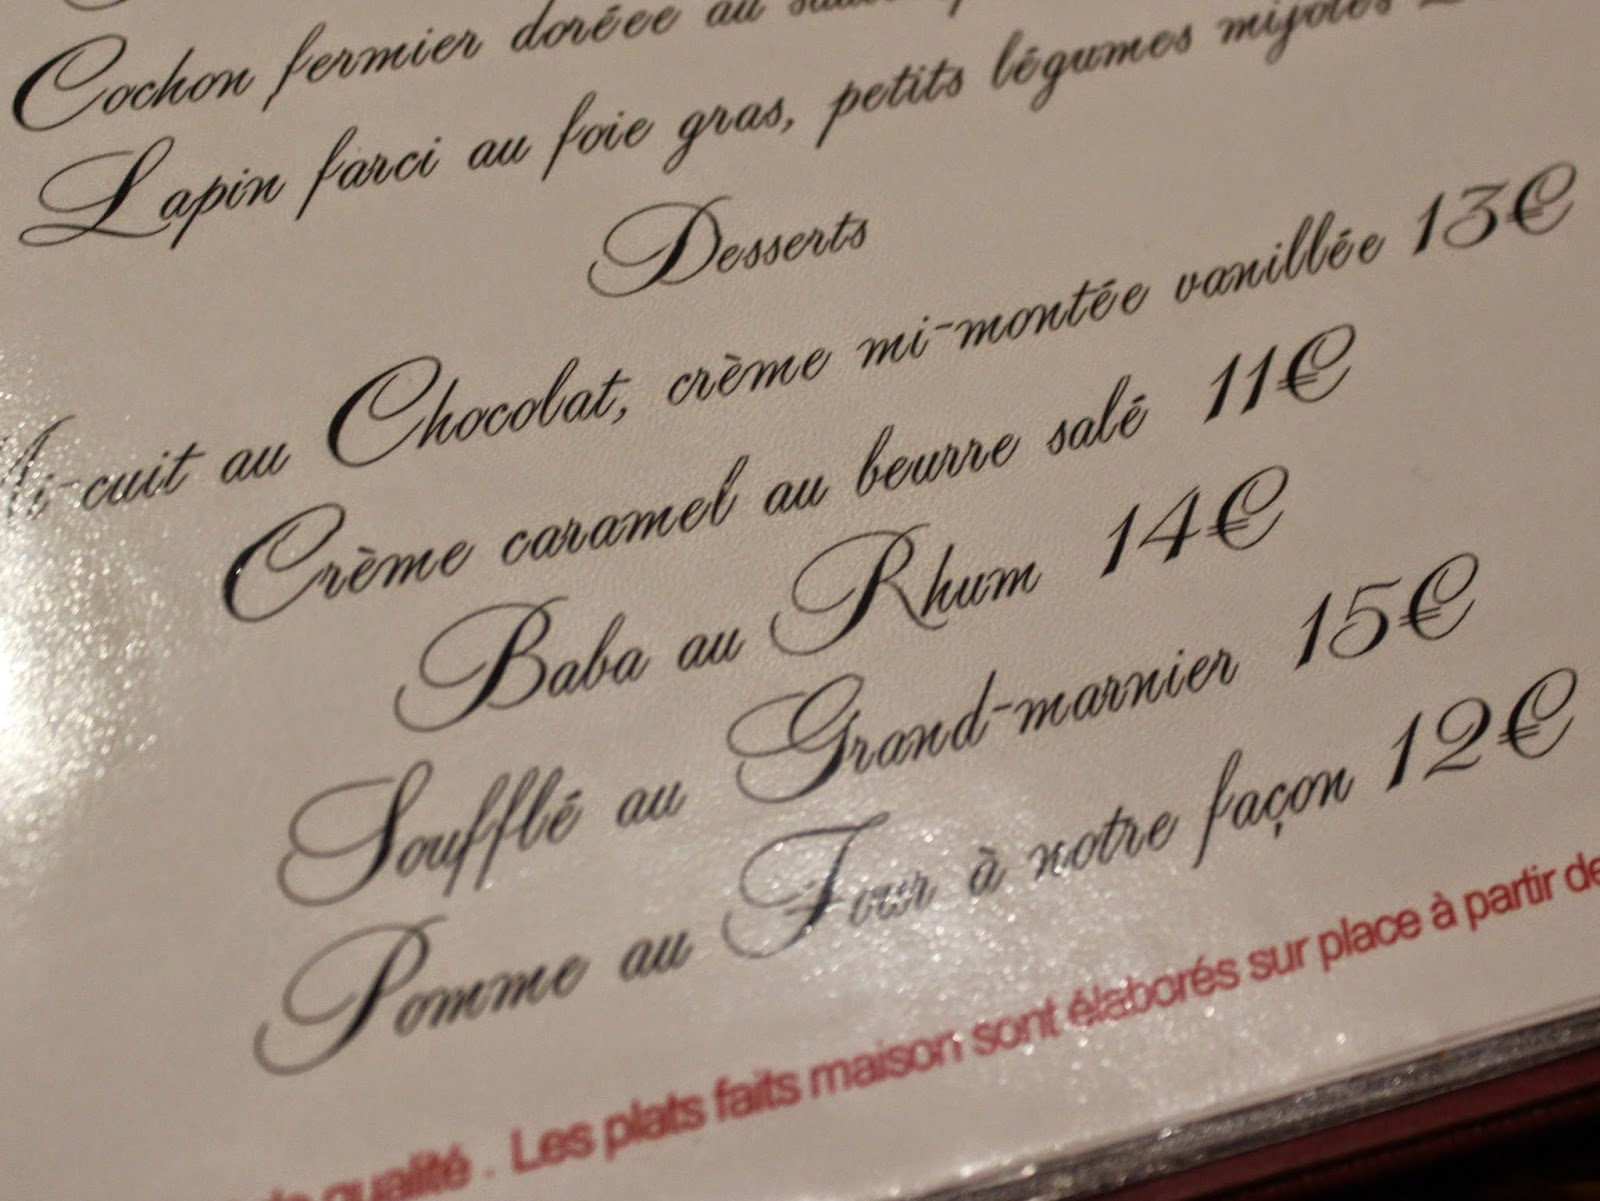 Cochon fermier doréee au
Lapin farci au foie gras, petits légumes mijotés
Desserts
Mi-cuit au Chocolat, crème mi-montée vanillée 13€
Crème caramel au beurre salé 11€
Baba au Rhum 14€
Soufflé au Grand-marnier 15€
Pomme au Four à notre façon 12€
de qualité . Les plats faits maison sont élaborés sur place à partir de